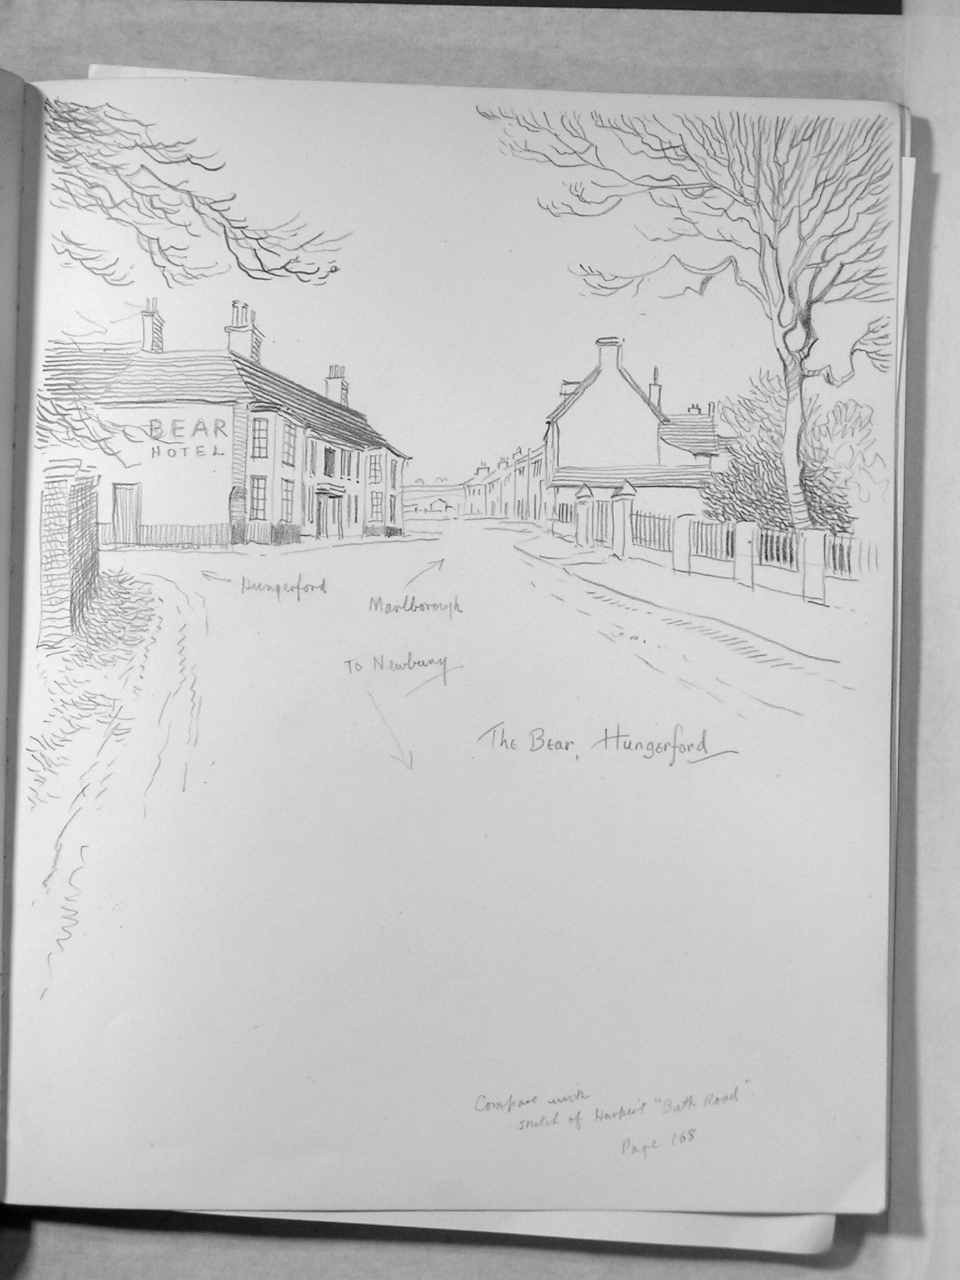 BEAR
HOTEL
Hungerford
Marlborough
To Newbury
The Bear, Hungerford
Compare with
sketch of Harper's "Bath Road"
Page 168